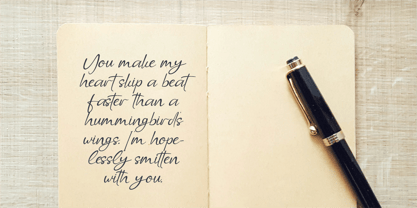 You make my
heart skip a beat
faster than a
hummingbirds
wings. I'm hope-
lessly smitten
with you.